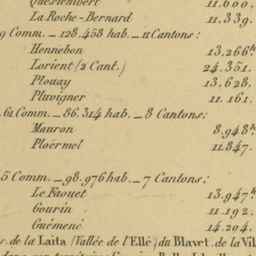 Questembert 11.000.
La Roche-Bernard 11.339.
9 Comm. _ 128.458 hab. _ 11 Cantons:
Hennebon 13.266h.
Lorient (2 Cant.) 24.351.
Plouay 13.628.
Pluvigner 11.161.
61 Comm. _ 86.314 hab _ 8 Cantons:
Mauron 8.948h.
Ploërmel 11.847.
5 Comm. _ 98.976 hab. _ 7 Cantons:
Le Faouet 13.947h.
Gourin 11.192.
Guémené 14.204.
s. de la Laita (Vallée de l'Ellé) du Blavet, de la Vil